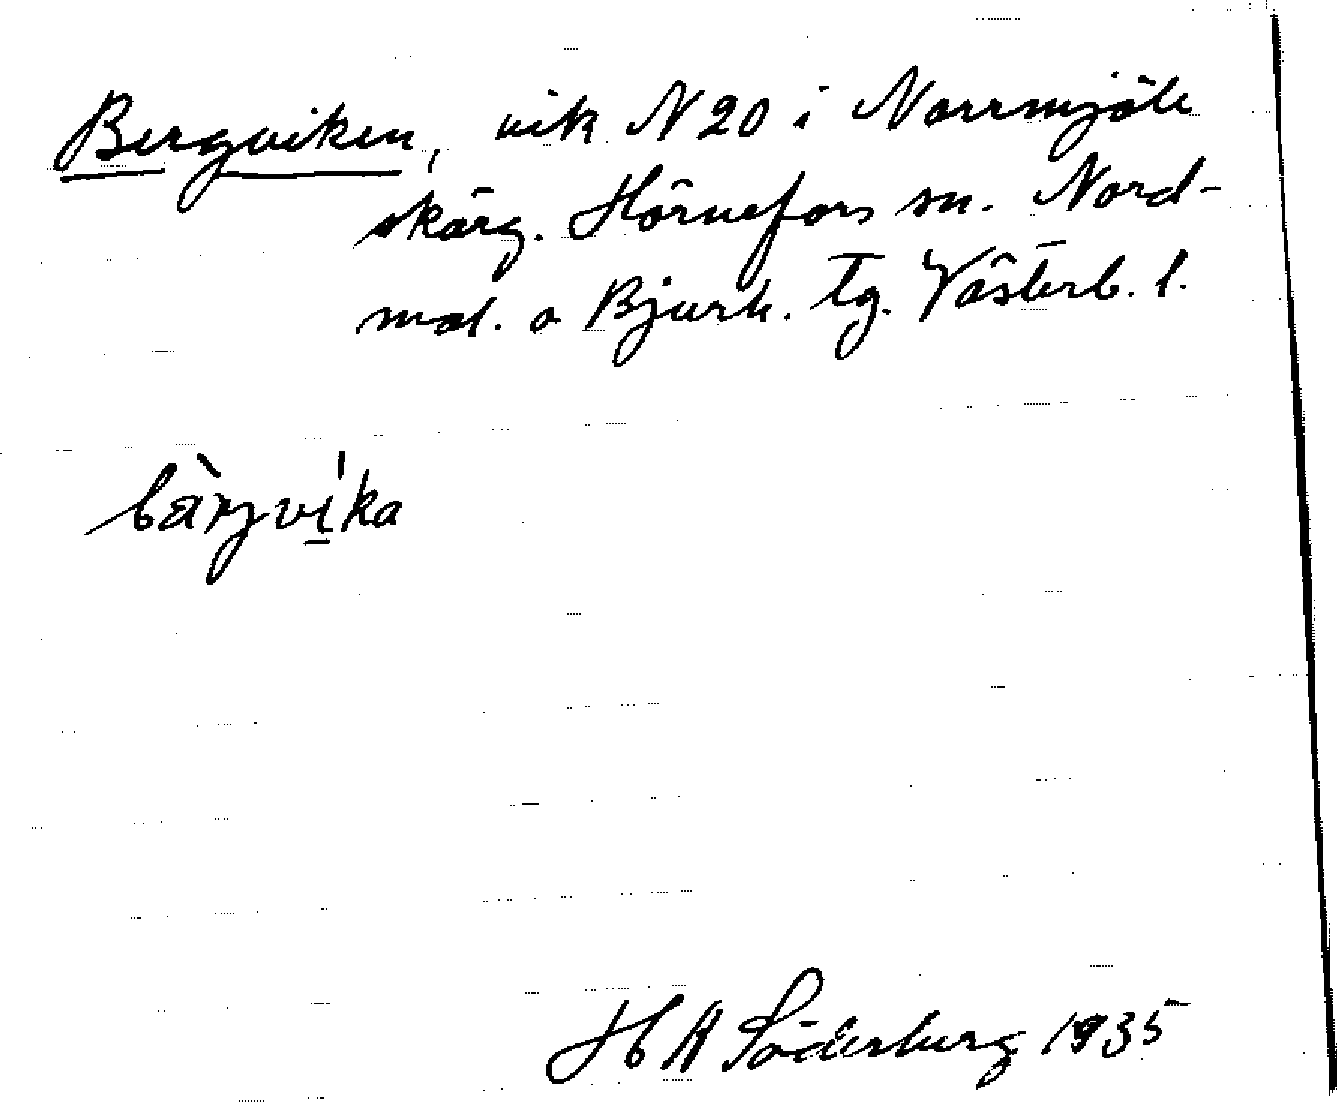 Bergviken, vik N 20 i Norrmjöle
skärg. Hörnefors sn. Nord-
mal. o Bjurh. tg. Västerb. l.
bä̀rjví̱ka
H A Söderberg 1935